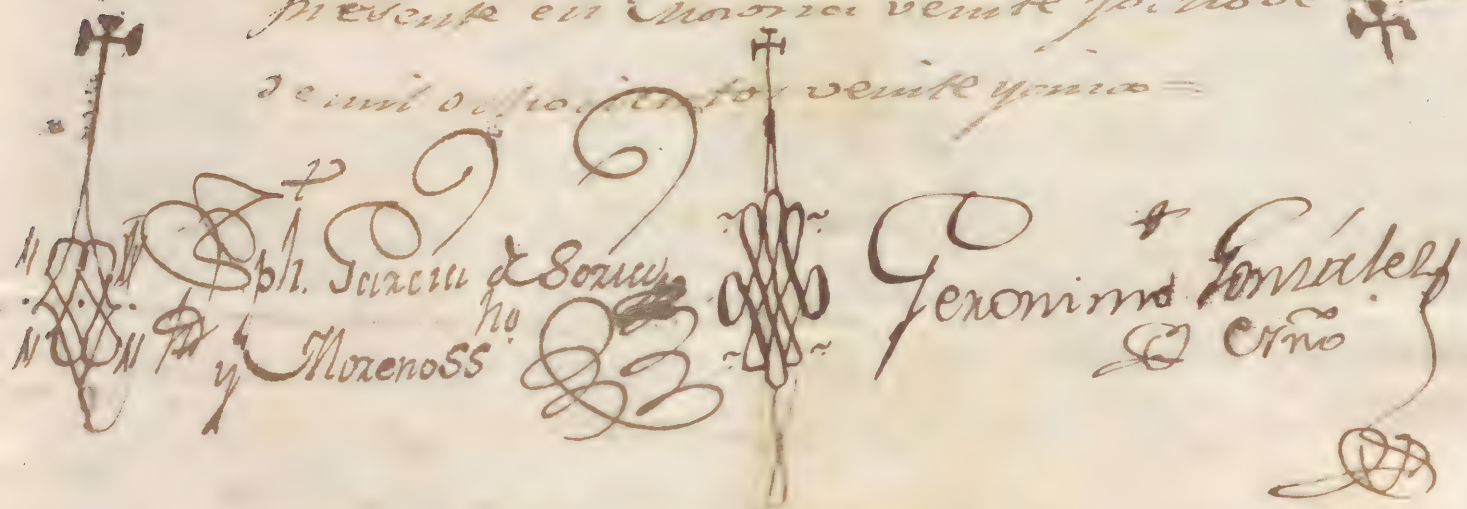 presente en veinte
de mil ochocientos veinte y cinco =
Jph. Garcia de Soria
y Moreno SSno
Geronimo González
Esñno